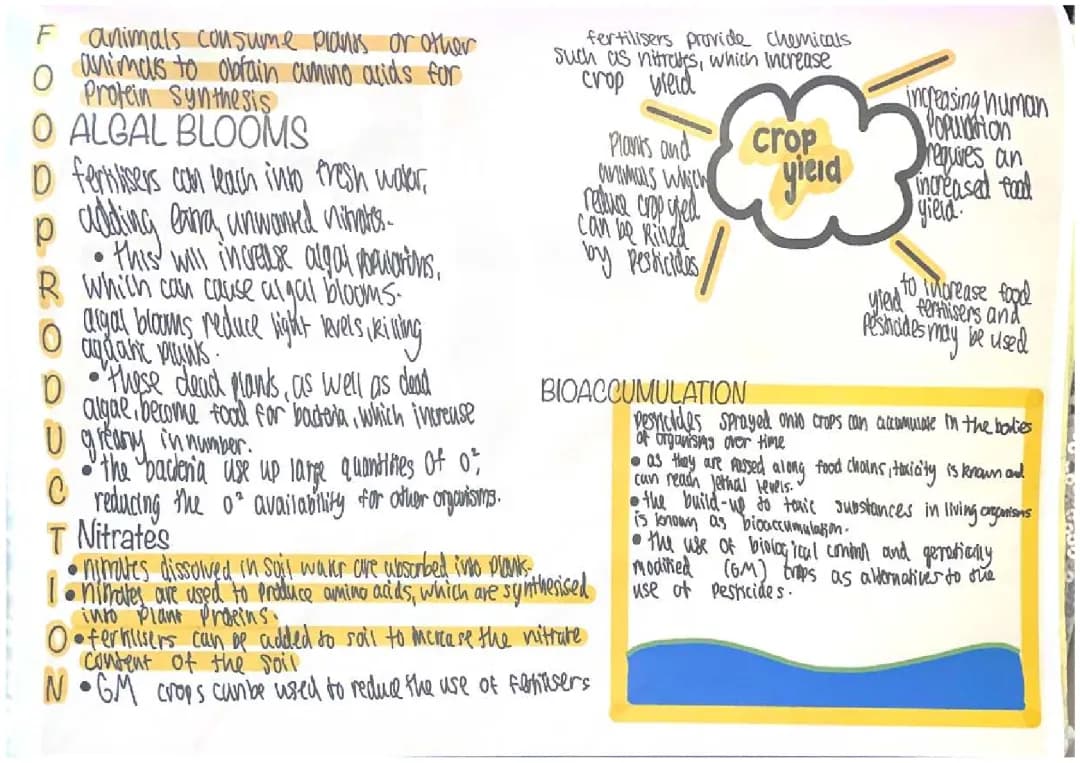 FOOD PRODUCTION
animals consume plants or other
animals to obtain amino acids for
Protein synthesis
ALGAL BLOOMS
fertilisers can leach into fresh water,
adding extra, unwanted nitrates.
• this will increase algal populations,
which can cause algal blooms.
algal blooms reduce light levels, killing
aquatic plants.
• these dead plants, as well as dead
algae, become food for bacteria, which increase
greatly in number.
• the bacteria use up large quantities of O²,
reducing the O² availability for other organisms.
Nitrates
• nitrates dissolved in soil water are absorbed into plants.
• nitrates are used to produce amino acids, which are synthesised
into plant proteins.
• fertilisers can be added to soil to increase the nitrate
content of the soil
• GM crops can be used to reduce the use of fertilisers
fertilisers provide chemicals
such as nitrates, which increase
crop yield
crop
yield
increasing human
population
requires an
increased food
yield.
Plants and
animals which
reduce crop yield
can be killed
by pesticides
to increase food
yield fertilisers and
pesticides may be used
BIOACCUMULATION
pesticides sprayed onto crops can accumulate in the bodies
of organisms over time
• as they are passed along food chains, toxicity is known and
can reach lethal levels.
• the build-up to toxic substances in living organisms
is known as bioaccumulation.
• the use of biological control and genetically
modified (GM) crops as alternatives to the
use of pesticides.